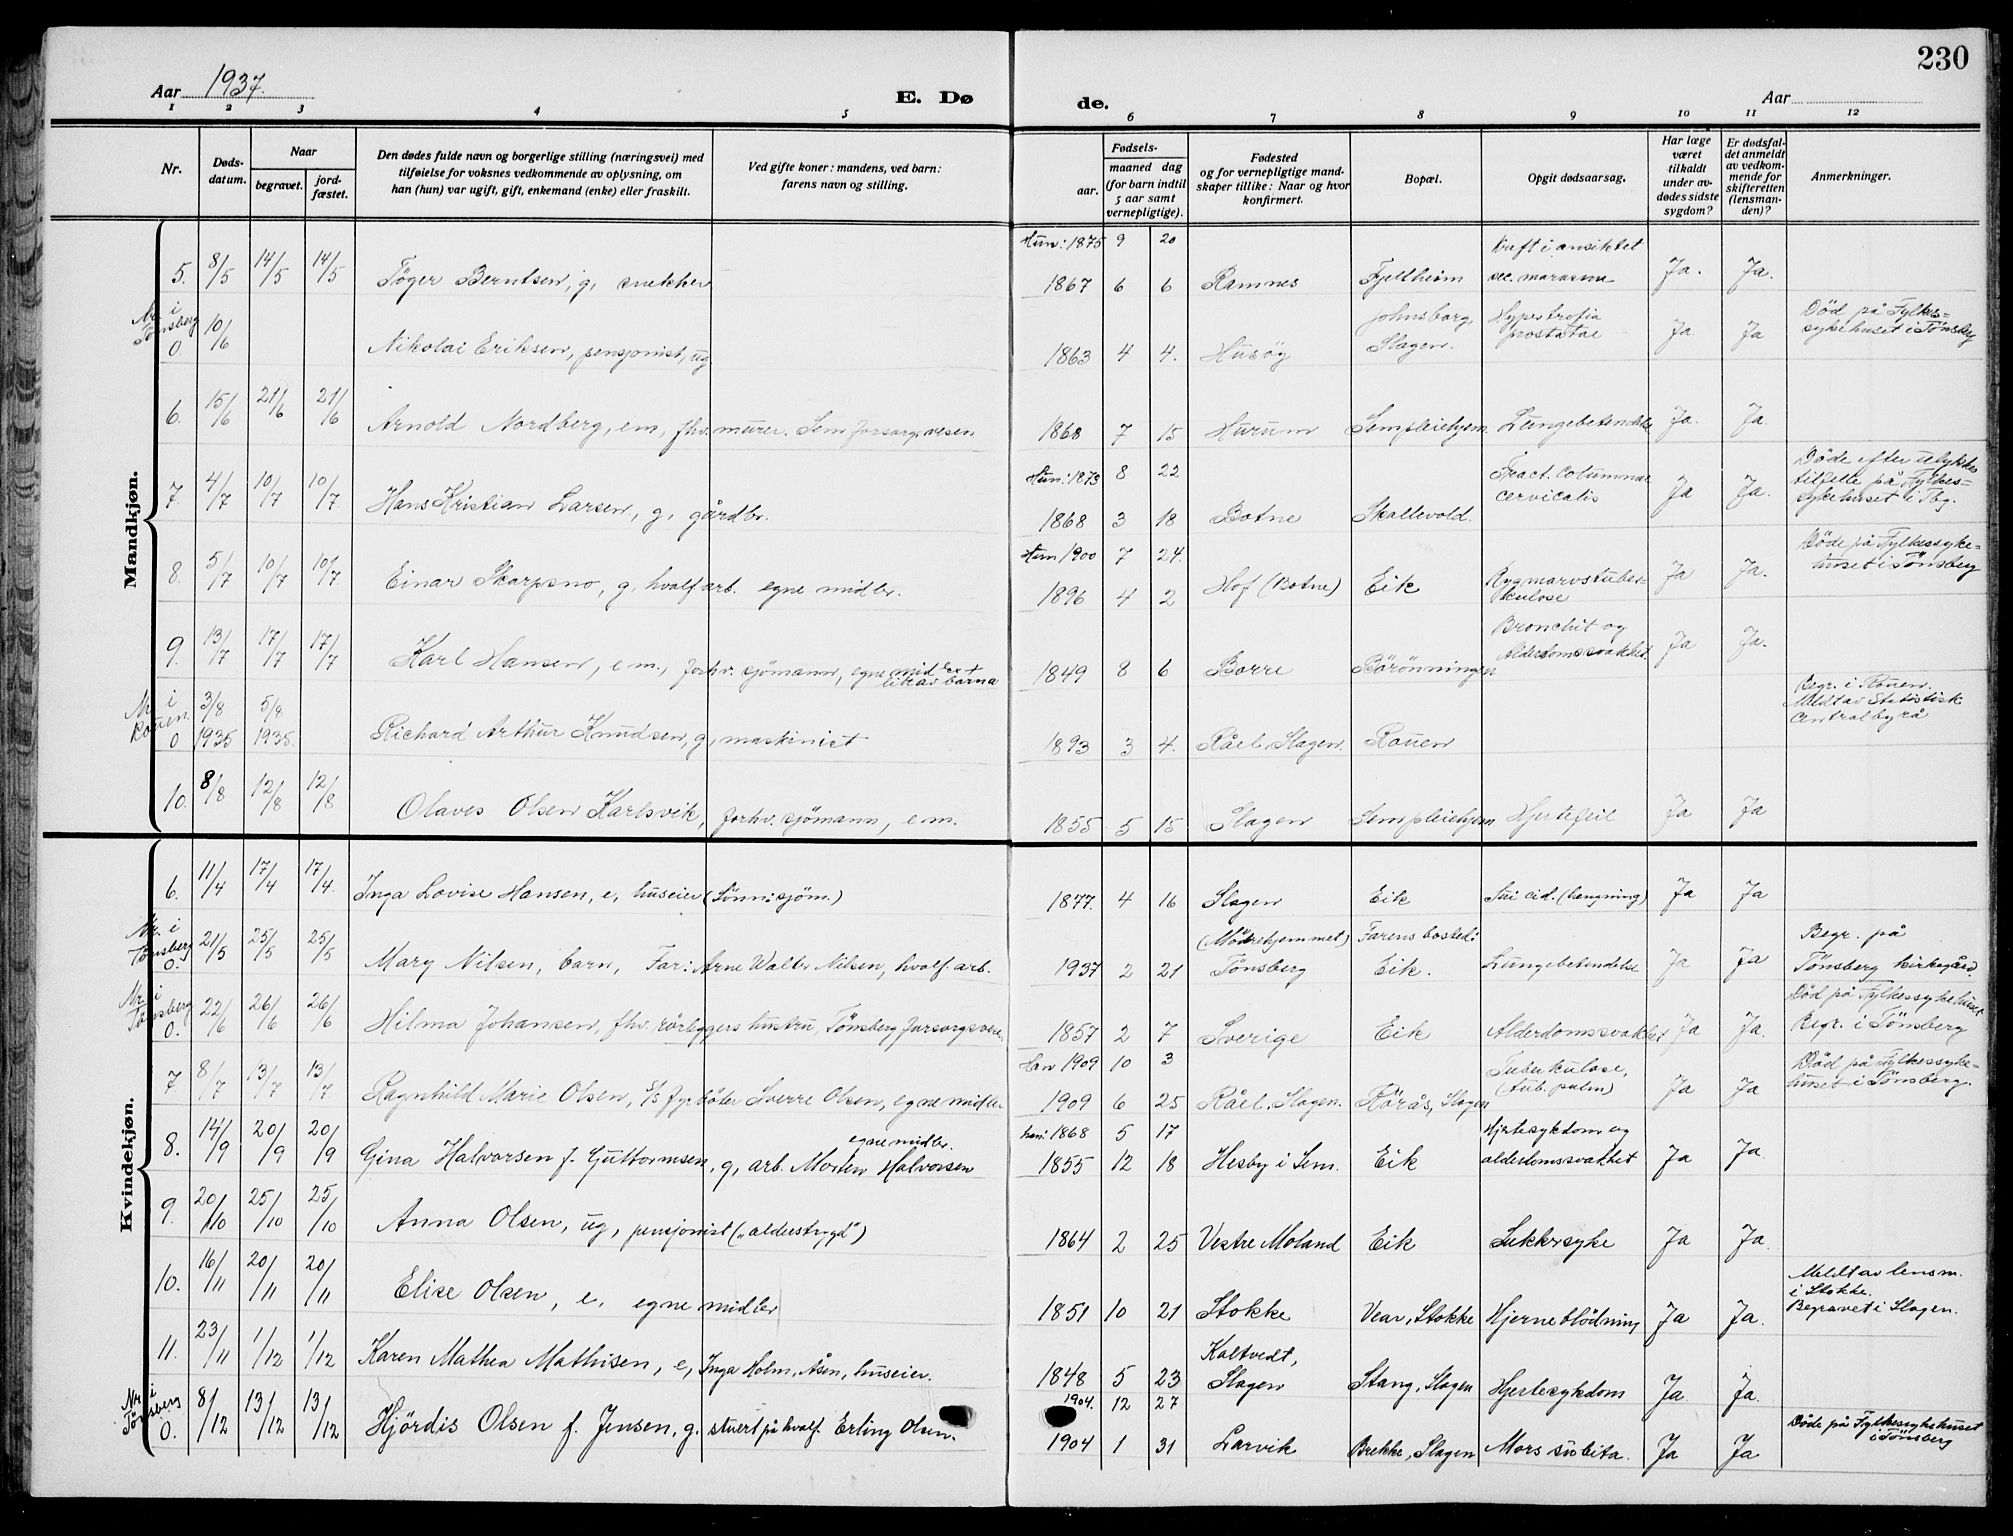 230
Aar 1937. E. Dø de. Aar
1 2 3 4 5 6 7 8 9 10 11 12
Nr.
Døds-
datum.
Naar
begravet.
jord-
fæstet.
Den dødes fulde navn og borgerlige stilling (næringsvei) med
tilføielse for voksnes vedkommende av oplysning, om
han (hun) var ugift, gift, enkemand (enke) eller fraskilt.
Ved gifte koner: mandens, ved barn:
farens navn og stilling.
Fødsels-
aar.
maaned dag
(for barn indtil
5 aar samt
vernepligtige).
Fødested
og for vernepligtige mand-
skaper tillike: Naar og hvor
konfirmert.
Bopæl.
Opgit dødsaarsag.
Har læge
været
tilkaldt
under av-
dødes sidste
sygdom?
Er dødsfal-
det anmeldt
av vedkom-
mende for
skifteretten
(lensman-
den)?
Anmerkninger.
Mandkjøn.
Hun: 1875 9 20 Kreft i ansiktet
5. 8/5 14/5 14/5 Tøger Berntsen, g, snekker 1867 6 6 Ramnes Fjellheim sec. marasme Ja. Ja.
Nr. i
Tønsberg
0 10/6 Nikolai Eriksen, pensjonist, ug 1863 4 4. Husøy Johnsborg, Slagen. Hypertrofia prostatae Ja Ja Død på Fylkes-
sykehuset i Tønsberg
6. 15/6 21/6 21/6 Arnold Nordberg, em, fhv. murer. Sem forsorgsvesen 1868 7 15 Hurum Sem pleiehjem. Lungebetendelse Ja. Ja.
Hun: 1873 8 22
7 4/7 10/7 10/7 Hans Kristian Larsen, g, gårdbr. 1868 3 18 Botne Skallevold. Fract. columnae cervicalis Ja Ja. Døde efter ulykkes
tilfelle på Fylkes-
sykehuset i Tbg.
Hun 1900 7 24.
8. 5/7 10/7 10/7. Einar Skarpsno, g, hvalfarb. egne midler. 1896 4 2 Hof (Botne) Eik Rygmarvstuber-
kulose Ja Ja. Døde på Fylkessyke-
huset i Tønsberg
9. 13/7 17/7 17/7 Karl Hansen, em., forhv. sjömann, egne midler + litt av barna 1849 8 6 Borre Börönningen Bronchit og
Alderdomssvakhet. Ja Ja.
Nr. i
Rouen.
0 3/8 1935 5/8 1935. Richard Arthur Knudsen, g, maskinist 1893 3 4. Råel, Slagen. Rouen Begr. i Rouen.
Meldt av Statistisk
Centralbyrå
10. 8/8 12/8 12/8 Olaves Olsen Karlsvik, forhv. sjömann, em. 1855 5 15 Slagen Sem pleiehjem Hjertefeil Ja Ja
Kvindekjøn.
6. 11/4 17/4 17/4. Inga Lovise Hansen, e, huseier (Sönn: sjöm.) 1877. 4 16 Slagen Eik Suicid. (hengning) Ja Ja
Nr. i
Tønsberg
0. 21/5 25/5 25/5 Mary Nilsen, barn, Far: Arne Walter Nilsen, hvalf. arb. 1937 2 21 (Mødrehjemmet) Tönsberg Farens bosted: Eik. Lungebetendelse Ja Ja Begr. på
Tönsberg kirkegård.
Nr. i
Tønsberg
0. 22/6 26/6 26/6 Hilma Johansen, fhv. rörleggers hustru, Tönsberg forsorgsvesen. 1857 2 7 Sverige Eik Alderdomssvakhet Ja Ja. Død på Fylkessykehuset
Begr. i Tönsberg
Han 1909 10 3
7 8/7 13/7 13/7 Ragnhild Marie Olsen, g, fyrböter Sverre Olsen, egne midler 1909 6 25 Råel, Slagen. Rörås, Slagen Tuberkulose, (tub. pulm) Ja Ja Død på Fylkessyke-
huset i Tönsberg.
han: 1868 5 17
8. 14/9 20/9 20/9 Gina Halvorsen f. Guttormsen, g, arb. Morten Halvorsen egne midler. 1855 12 18 Hesby i Sem. Eik Hjertesykdom og
alderdomssvakhet Ja Ja.
9. 20/10 25/10 25/10 Anna Olsen, ug, pensjonist („alderstrygd") 1864 2 25 Vestre Moland Eik Sukkersyke Ja Ja.
10. 16/11 20/11 20/11 Elise Olsen, e, egne midler 1851 10 21 Stokke Vear, Stokke Hjerneblödning Ja Ja. Meldt av lensm.
i Stokke.
Begravet i Slagen.
11. 23/11 1/12 1/12 Karen Mathea Mathisen, e, Inga Holm, Åsen, huseier. 1848 5 23 Kaltvedt, Slagen Stang, Slagen Hjertesykdom Ja Ja.
1904. 12 27
Nr. i
Tønsberg
0. 8/12 13/12 13/12 Hjördis Olsen f. Jensen, g. stuert på hvalf. Erling Olsen. 1904 1 31 Larvik Brekke, Slagen Mors subita. Ja Ja Döde på Fylkessykehuset
i Tönsberg